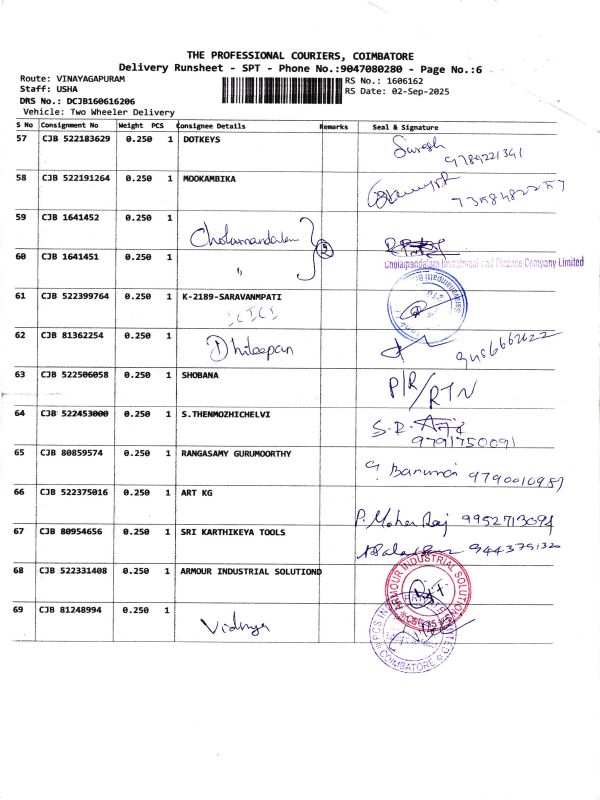 THE PROFESSIONAL COURIERS, COIMBATORE
Delivery Runsheet - SPT - Phone No.:9047080280 - Page No.:6
Route: VINAYAGAPURAM RS No.: 1606162
Staff: USHA RS Date: 02-Sep-2025
DRS No.: DCJB160616206
Vehicle: Two Wheeler Delivery
S No Consignment No Weight PCS Consignee Details Remarks Seal & Signature
57 CJB 522183629 0.250 1 DOTKEYS Suresh
9789221341
58 CJB 522191264 0.250 1 MOOKAMBIKA
59 CJB 1641452 0.250 1 Cholamandalam
60 CJB 1641451 0.250 1 " 2
Cholamandalam Investment and Finance Company Limited
61 CJB 522399764 0.250 1 K-2189-SARAVANMPATI
ICICI
62 CJB 81362254 0.250 1 Dhileepan 9486662622
63 CJB 522506058 0.250 1 SHOBANA P/R/RTN
64 CJB 522453000 0.250 1 S.THENMOZHICHELVI S.R.
9791750091
65 CJB 80859574 0.250 1 RANGASAMY GURUMOORTHY
9790010989
66 CJB 522375016 0.250 1 ART KG P. Mohan Raj 9952713094
67 CJB 80954656 0.250 1 SRI KARTHIKEYA TOOLS 9443791320
68 CJB 522331408 0.250 1 ARMOUR INDUSTRIAL SOLUTIOND
ARMOUR INDUSTRIAL SOLUTIONS
69 CJB 81248994 0.250 1 Vidhya
COIMBATORE